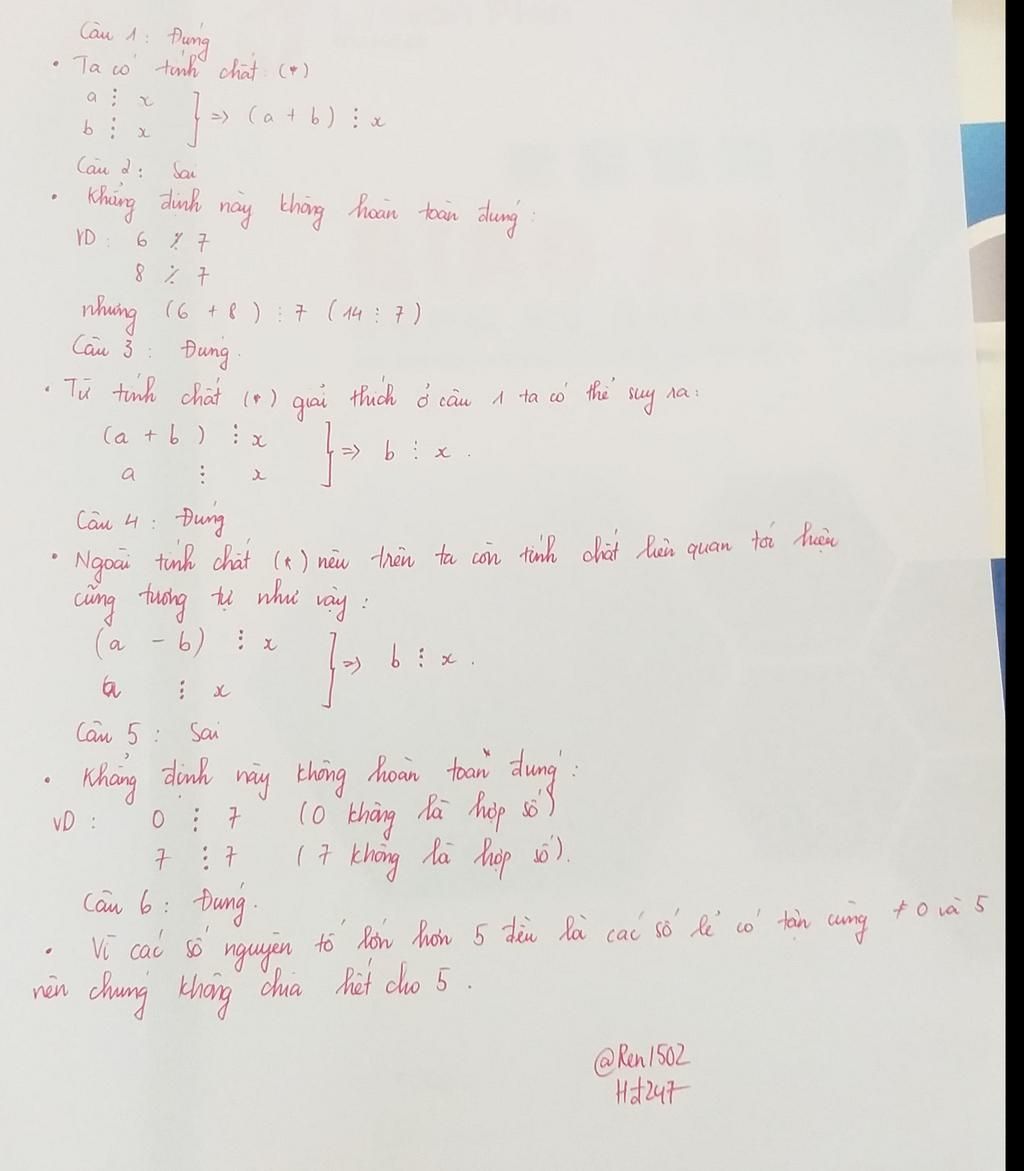 Câu 1: Đúng
• Ta có tính chất (*)
a ⋮ x
b ⋮ x } => (a + b) ⋮ x
Câu 2: Sai
• Khẳng định này không hoàn toàn đúng:
VD: 6 ⋮̸ 7
8 ⋮̸ 7
nhưng (6 + 8) ⋮ 7 (14 ⋮ 7)
Câu 3: Đúng.
• Từ tính chất (*) giải thích ở câu 1 ta có thể suy ra:
(a + b) ⋮ x
a ⋮ x } => b ⋮ x.
Câu 4: Đúng
• Ngoài tính chất (*) nêu trên ta còn tính chất liên quan tới hiệu
cũng tương tự như vậy:
(a - b) ⋮ x
a ⋮ x } => b ⋮ x.
Câu 5: Sai
• Khẳng định này không hoàn toàn đúng:
VD: 0 ⋮ 7 (0 không là hợp số)
7 ⋮ 7 (7 không là hợp số).
Câu 6: Đúng.
• Vì các số nguyên tố lớn hơn 5 đều là các số lẻ có tận cùng ≠ 0 và 5
nên chúng không chia hết cho 5.
@Ren1502
Hd247